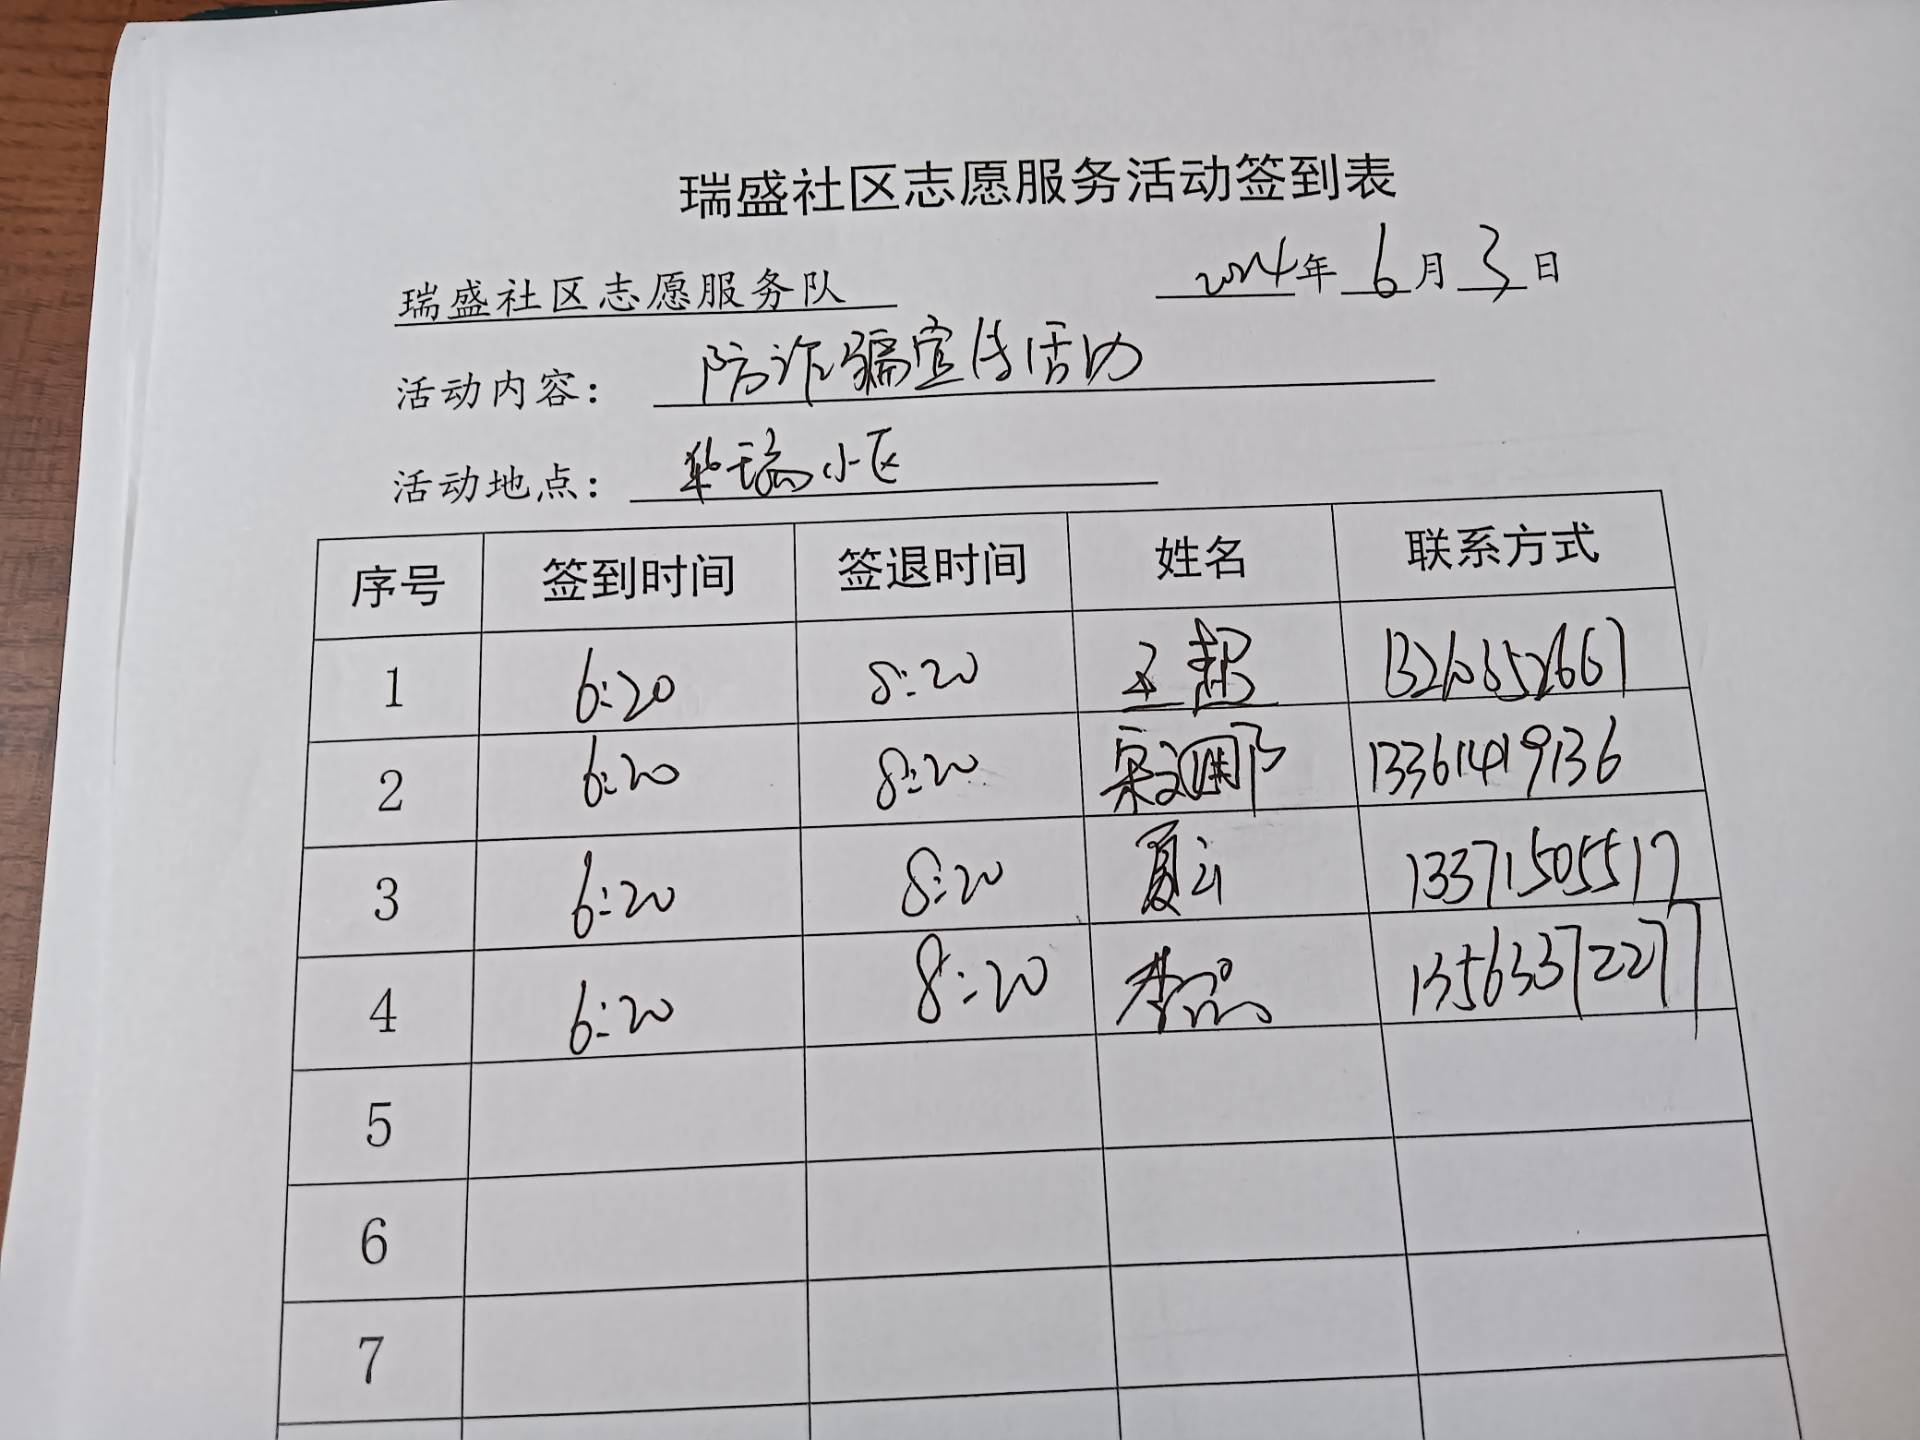 瑞盛社区志愿服务活动签到表
瑞盛社区志愿服务队 2024年 6月 3日
活动内容: 防诈骗宣传活动
活动地点: 华瑞小区
序号 签到时间 签退时间 姓名 联系方式
1 6:20 8:20
2 6:20 8:20 13361419136
3 6:20 8:20 夏云 13371505517
4 6:20 8:20 李 13563372277
5
6
7